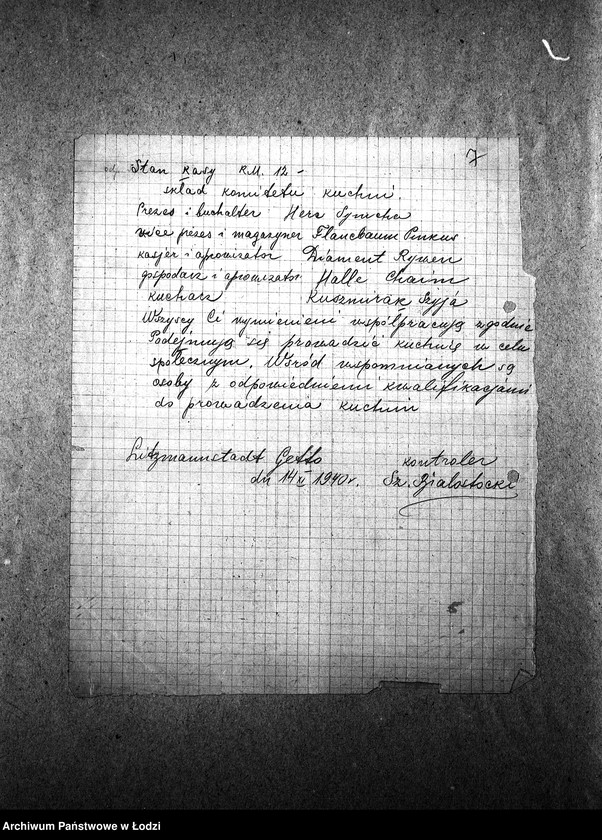 7
odp. Stan kasy R.M. 12 –
skład komitetu kuchni.
Prezes i buchalter Herc Symcha
wice prezes i magazyner Flancbaum Pinkus
kasjer i aprowizator Diament Rywen
gospodarz i aprowizator Halle Chaim
kucharz Kuszmirak Szyja
Wszyscy Ci wymienieni współpracują zgodnie
Podejmują się prowadzić kuchnię w celu
społecznym. Wśród wspomnianych są
osoby z odpowiedniemi kwalifikacjami
do prowadzenia kuchni
Litzmannstadt Getto kontroler
dn 14 XI 1940 r. Sz. Białostocki
Archiwum Państwowe w Łodzi